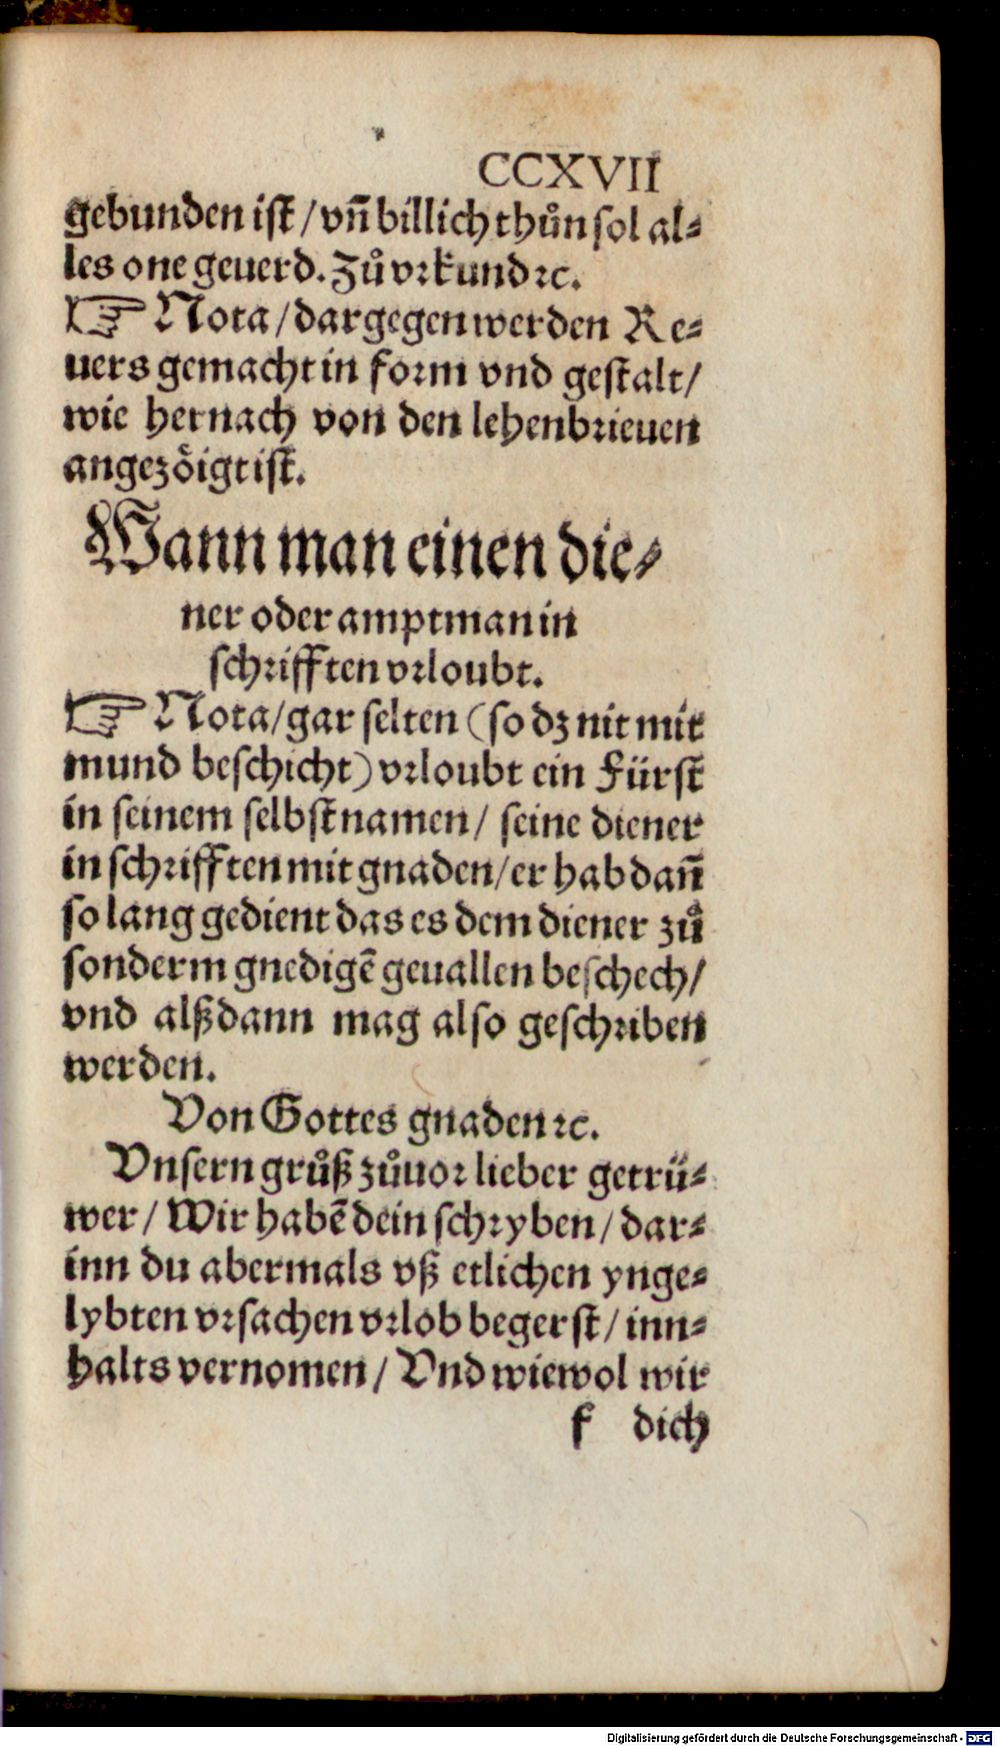 CCXVII
gebunden ist / vñ billich thůn sol al⸗
les one geuerd. Zů vrkund ⁊c.
☞ Nota / dargegen werden Re⸗
uers gemacht in form vnd gestalt /
wie hernach von den lehenbrieuen
angezöigt ist.
Wann man einen die⸗
ner oder amptman in
schrifften vrloubt.
☞ Nota / gar selten (so dz nit mit
mund beschicht) vrloubt ein Fürst
in seinem selbst namen / seine diener
in schrifften mit gnaden / er hab dañ
so lang gedient das es dem diener zů
sonderm gnedigē geuallen beschech /
vnd alßdann mag also geschriben
werden.
Von Gottes gnaden ⁊c.
Vnsern grůß zůuor lieber getrü⸗
wer / Wir habē dein schryben / dar⸗
inn du abermals vß etlichen ynge⸗
lybten vrsachen vrlob begerst / inn⸗
halts vernomen / Vnd wiewol wir
f dich
Digitalisierung gefördert durch die Deutsche Forschungsgemeinschaft - DFG